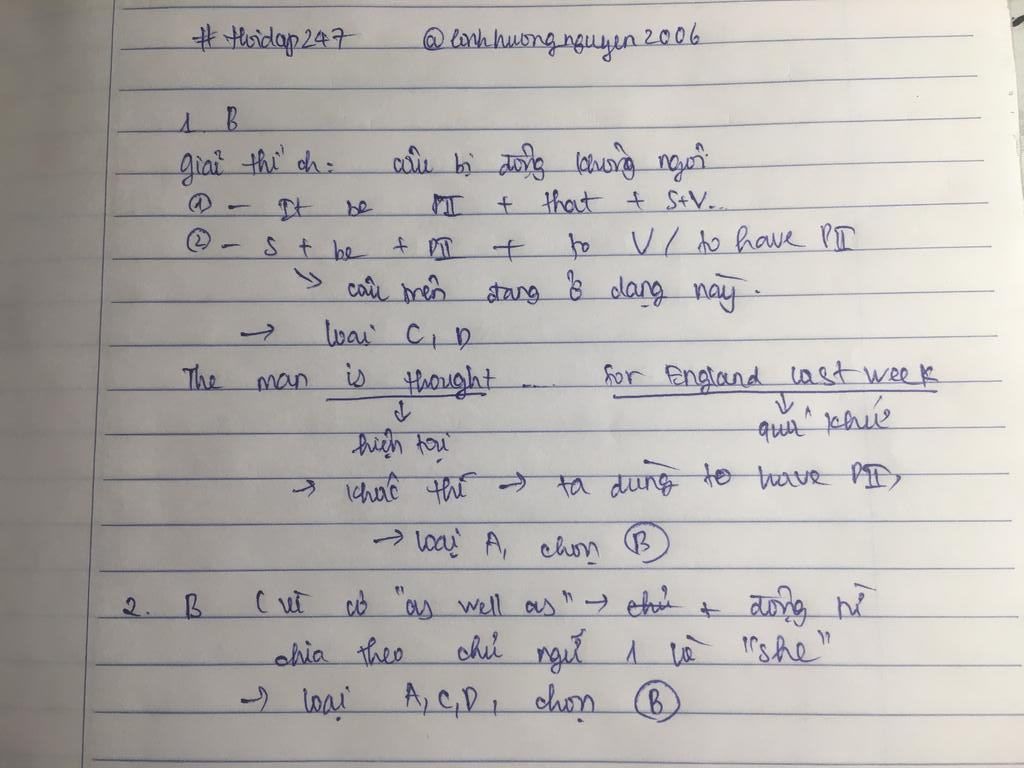 #hoidap247 @linhhuongnguyen2006
1. B
giải thích: câu bị động không ngôi
① - It be PII + that + S+V...
② - S + be + PII + to V / to have PII
↘ câu trên đang ở dạng này.
→ loại C, D
The man is thought .... for England last week
↓ ↓
hiện tại quá khứ
→ khác thì → ta dùng to have PII,
→ loại A, chọn B
2. B (vì có "as well as" → chủ + động từ
chia theo chủ ngữ 1 là "she"
→ loại A, C, D, chọn B